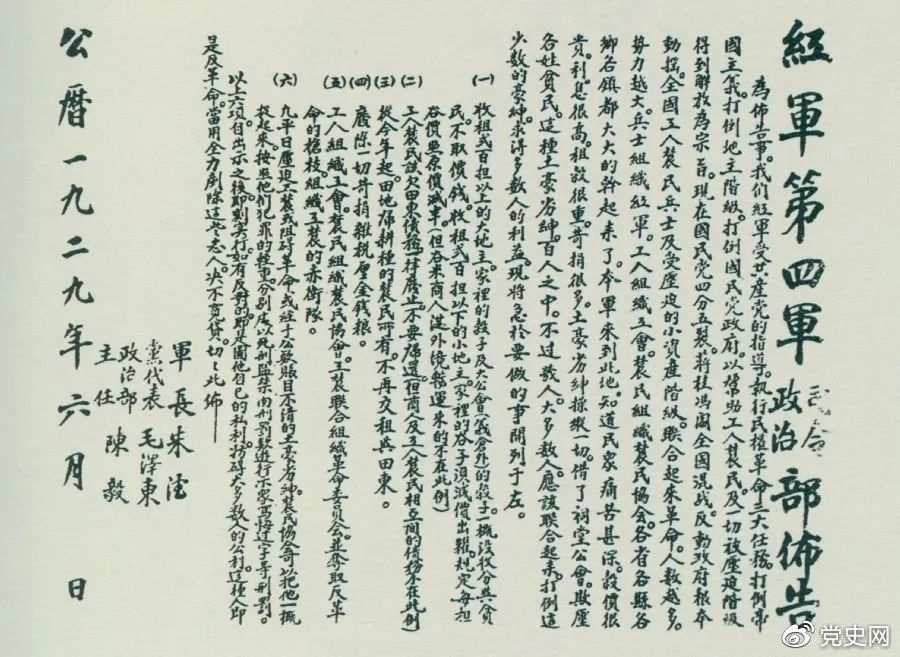 紅軍第四軍 司令 政治 部佈告
為佈告事。我們紅軍受共產党的指導。執行民權革命三大任務。打倒帝
國主義。打倒地主階級。打倒國民党政府。以幫助工人農民及一切被壓迫階級
得到解放為宗旨。現在國民党四分五裂。蔣桂馮閻全國混战。反動政府根本
動搖。全國工人農民兵士及受壓迫的小資產階級。聯合起來革命。人数越多。
势力越大。兵士組織紅軍。工人組織工會。農民組織農民協会。各省各縣各
鄉各鎮都大大的幹起來了。本軍來到此地。知道民眾痛苦甚深。穀價很
貴。利息很高。租穀很重。苛捐很多。土豪劣紳操縱一切。借了祠堂公會。欺壓
各姓貧民。這種土豪劣紳。百人之中。不过数人。大多數人。應該联合起來。打倒這
少数的豪紳。求得多数人的利益。現將急於要做的事開列于左。
（一）收租弍百担以上的大地主。家裡的穀子及大公會（義倉外）的穀子。一概沒收分與貧
民。不取價钱。收租弍百担以下的小地主。家裡的谷子。須減價出糶。規定每担
谷價照原價減半。（但谷米商人從外境販運来的不在此例）
（二）工人農民該欠田東債務。一律廢止。不要归還。（但商人及工人農民相互間的債務不在此例）
（三）從今年起。田地歸耕種的農民所有。不再交租與田東。
（四）廢除一切苛捐雜税厘金錢粮。
（五）工人組織工會。農民組織農民協會。工農联合組織革命委員会。並奪取反革
命的槍枝。組織工農的赤衛隊。
（六）凡平日壓迫工農。或阻碍革命。或经手公款賬目不清的土豪劣紳。農民協會可以把他一概
捉起來。按照他們犯罪的輕重。分别處以死刑監禁肉刑罰款遊行示眾寫悔过字等刑罰。
以上六項。自出示之後。即刻实行。如有反對的。即是圖他自己的私利。妨碍大多数人的公利。這種人。即
是反革命。當用全力剷除這些惡人。决不寬貸。切切此佈
軍長 朱德
黨代表 毛澤東
政治部主任 陳毅
公曆一九二九年六月 日
党史网